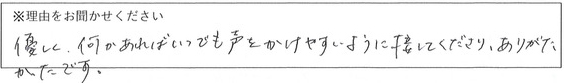 ※理由をお聞かせください
優しく、何かあればいつでも声をかけやすいように接してくださり、ありがた
かったです。